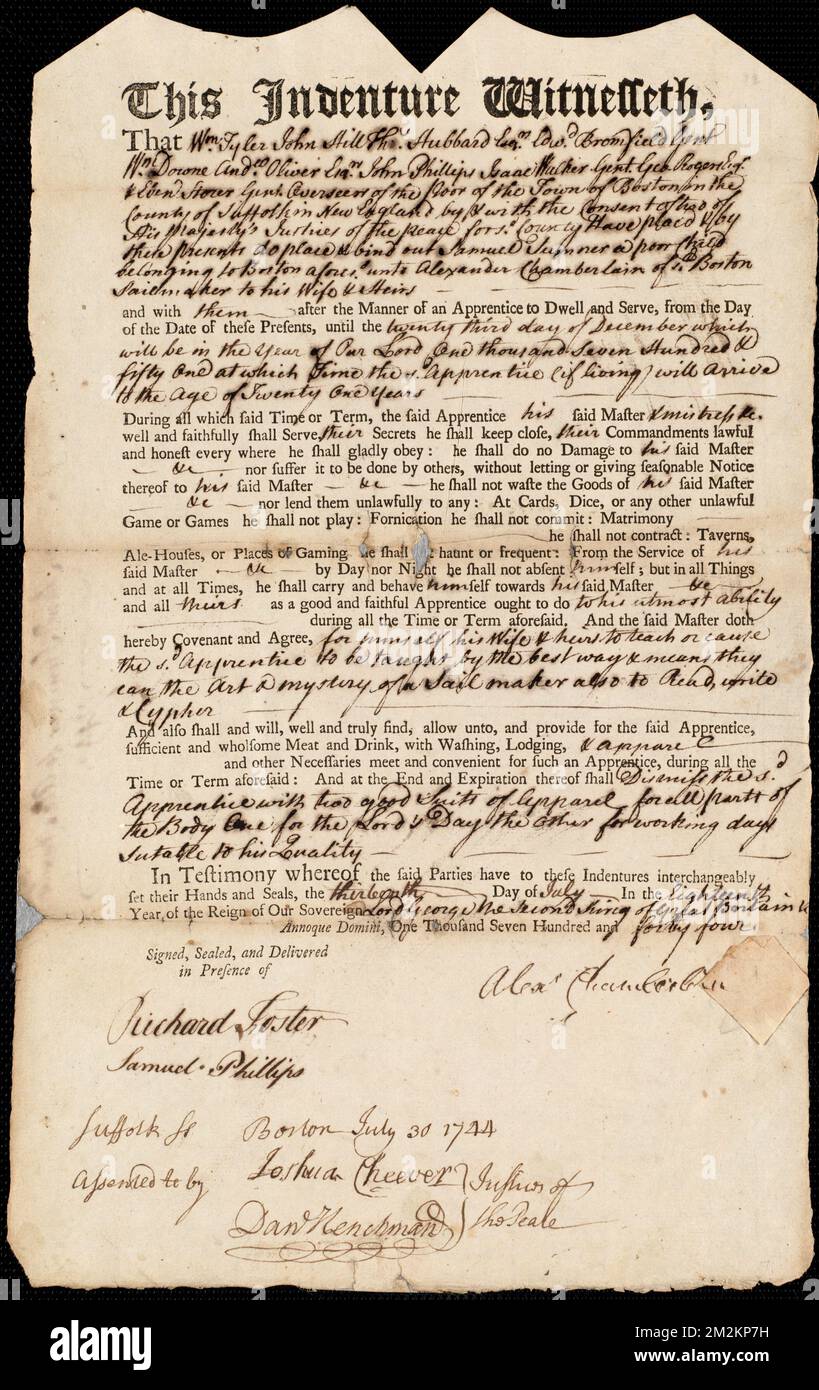 This Indenture Witnesseth,
That Wm. Tyler John Hill Tho. Hubbard Esqrs Edwd Bromfield Gent
Wm Downe Andw Oliver Esqrs John Phillips Isaac Walker Gent. Geo Rogers Esqr
& Ebenr Storer Gent. Overseers of the Poor of the Town of Boston in the
County of Suffolk in New England by & with the Consent of two of
His Majesty's Justices of the peace for sd County Have placed & by
these presents do place & bind out Samuel Sumner a poor Child
belonging to Boston afores.d unto Alexander Chamberlain of sd Boston
Sailmaker to his Wife & Heirs
and with them after the Manner of an Apprentice to Dwell and Serve, from the Day
of the Date of these Presents, until the twenty third day of December which
will be in the Year of Our Lord One thousand Seven Hundred &
fifty One at which Time the sd Apprentice (if living) will arrive
to the Age of Twenty One Years
During all which said Time or Term, the said Apprentice his said Master & mistress &c.
well and faithfully shall Serve, their Secrets he shall keep close, their Commandments lawful
and honest every where he shall gladly obey: he shall do no Damage to his said Master
&c nor suffer it to be done by others, without letting or giving seasonable Notice
thereof to his said Master &c he shall not waste the Goods of his said Master
&c nor lend them unlawfully to any: At Cards, Dice, or any other unlawful
Game or Games he shall not play: Fornication he shall not commit: Matrimony
he shall not contract: Taverns,
Ale-Houses, or Places of Gaming he shall haunt or frequent: From the Service of his
said Master &c by Day nor Night he shall not absent himself; but in all Things
and at all Times, he shall carry and behave himself towards his said Master &c
and all theirs as a good and faithful Apprentice ought to do to his utmost ability
during all the Time or Term aforesaid. And the said Master doth
hereby Covenant and Agree, for himself his Wife & heirs to teach or cause
the sd Apprentice to be taught by the best way & means they
can the Art & mystery of a Sail maker also to Read, write
& Cypher
And also shall and will, well and truly find, allow unto, and provide for the said Apprentice,
sufficient and wholsome Meat and Drink, with Washing, Lodging, & apparel
and other Necessaries meet and convenient for such an Apprentice, during all the
Time or Term aforesaid: And at the End and Expiration thereof shall Dismiss the sd
Apprentice with two good Suits of Apparel for all parts of
the Body One for the Lord's Day the other for working days
sutable to his Quality
In Testimony whereof the said Parties have to these Indentures interchangeably
set their Hands and Seals, the thirteenth Day of July In the Eighteenth
Year, of the Reign of Our Sovereign Lord George the Second King of Great Brittain &c
Annoque Domini, One Thousand Seven Hundred and forty four
Signed, Sealed, and Delivered
in Presence of
Alexr Chamberlin
Richard Foster
Samuel Phillips
Suffolk Ss Boston July 30 1744
Assented to by Joshua Cheever } Justices of
Danl Henchman } the Peace
alamy
Image ID: 2M2KP7H
www.alamy.com